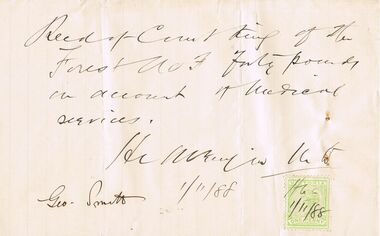 Recd of Court King of the
Forest forty pounds
on account of Medical
services.
1/11/88
Geo. Smith
1/11/88